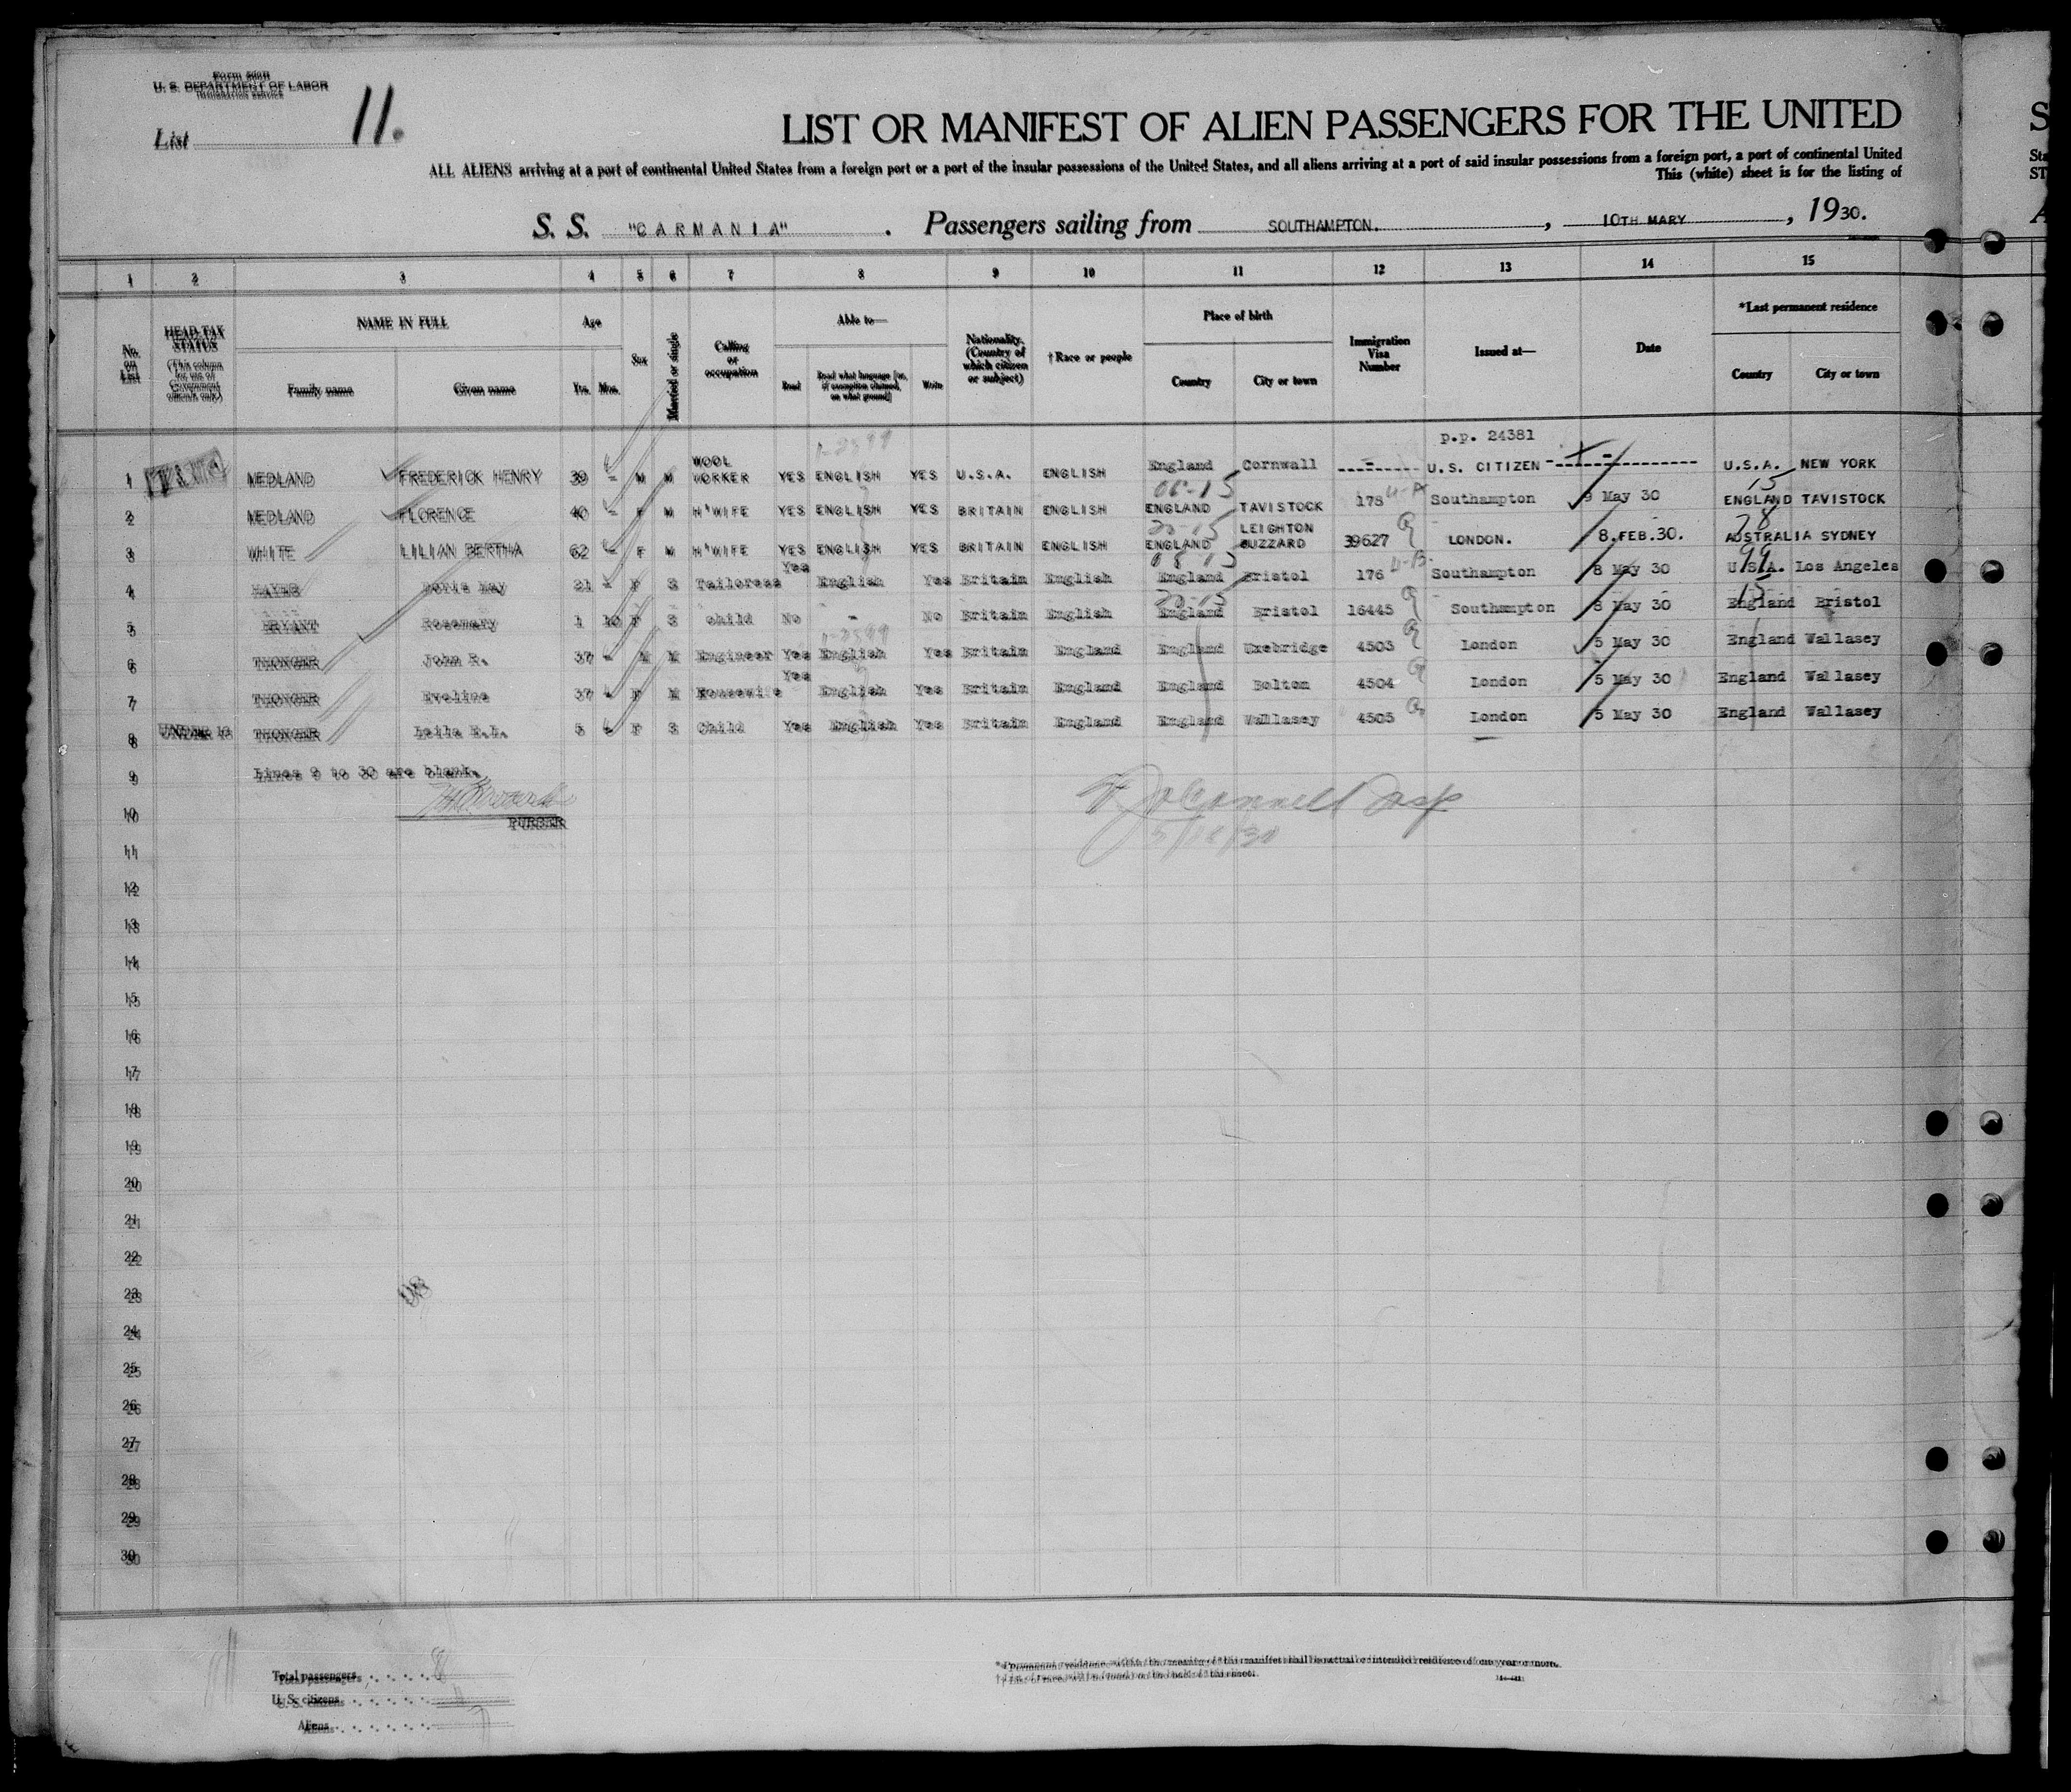 Form 500B
U. S. DEPARTMENT OF LABOR
IMMIGRATION SERVICE
List 11.
LIST OR MANIFEST OF ALIEN PASSENGERS FOR THE UNITED
ALL ALIENS arriving at a port of continental United States from a foreign port or a port of the insular possessions of the United States, and all aliens arriving at a port of said insular possessions from a foreign port, a port of continental United
This (white) sheet is for the listing of
S. S. "CARMANIA" . Passengers sailing from SOUTHAMPTON. , 10TH MARY , 1930.
1 2 3 4 5 6 7 8 9 10 11 12 13 14 15
No. on List HEAD-TAX STATUS (This column for use of Government officials only) NAME IN FULL Family name Given name Age Yrs. Mos. Sex Married or single Calling or occupation Able to— Read Read what language [or, if exemption claimed, on what ground] Write Nationality. (Country of which citizen or subject) †Race or people Place of birth Country City or town Immigration Visa Number Issued at— Date *Last permanent residence Country City or town
p.p. 24381
1 MEDLAND FREDERICK HENRY 39 - M M WOOL WORKER YES ENGLISH YES U.S.A. ENGLISH England Cornwall U.S. CITIZEN U.S.A. NEW YORK
2 MEDLAND FLORENCE 40 - F M H'WIFE YES ENGLISH YES BRITAIN ENGLISH ENGLAND TAVISTOCK 178 Southampton 9 May 30 ENGLAND TAVISTOCK
3 WHITE LILIAN BERTHA 62 - F M H'WIFE YES ENGLISH YES BRITAIN ENGLISH ENGLAND LEIGHTON BUZZARD 39627 LONDON. 8.FEB.30. AUSTRALIA SYDNEY
4 HAYES Doris May 21 - F S Tailoress Yes English Yes Britain English England Bristol 176 Southampton 8 May 30 U.S.A. Los Angeles
5 BRYANT Rosemary 1 10 F S Child No - No Britain English England Bristol 16445 Southampton 8 May 30 England Bristol
6 THONGER John R. 37 - M M Engineer Yes English Yes Britain England England Uxebridge 4503 London 5 May 30 England Wallasey
7 THONGER Eveline 37 - F M Housewife Yes English Yes Britain England England Bolton 4504 London 5 May 30 England Wallasey
8 UNDER 16 THONGER Leila E.L. 5 - F S Child Yes English Yes Britain England England Wallasey 4505 London 5 May 30 England Wallasey
9 Lines 9 to 30 are blank.
10 PURSER
11
12
13
14
15
16
17
18
19
20
21
22
23
24
25
26
27
28
29
30
Total passengers 8
U. S. citizens
Aliens 7
* Permanent residence within the meaning of this manifest shall be actual or intended residence of one year or more.
† List of races will be found on the back of this sheet.